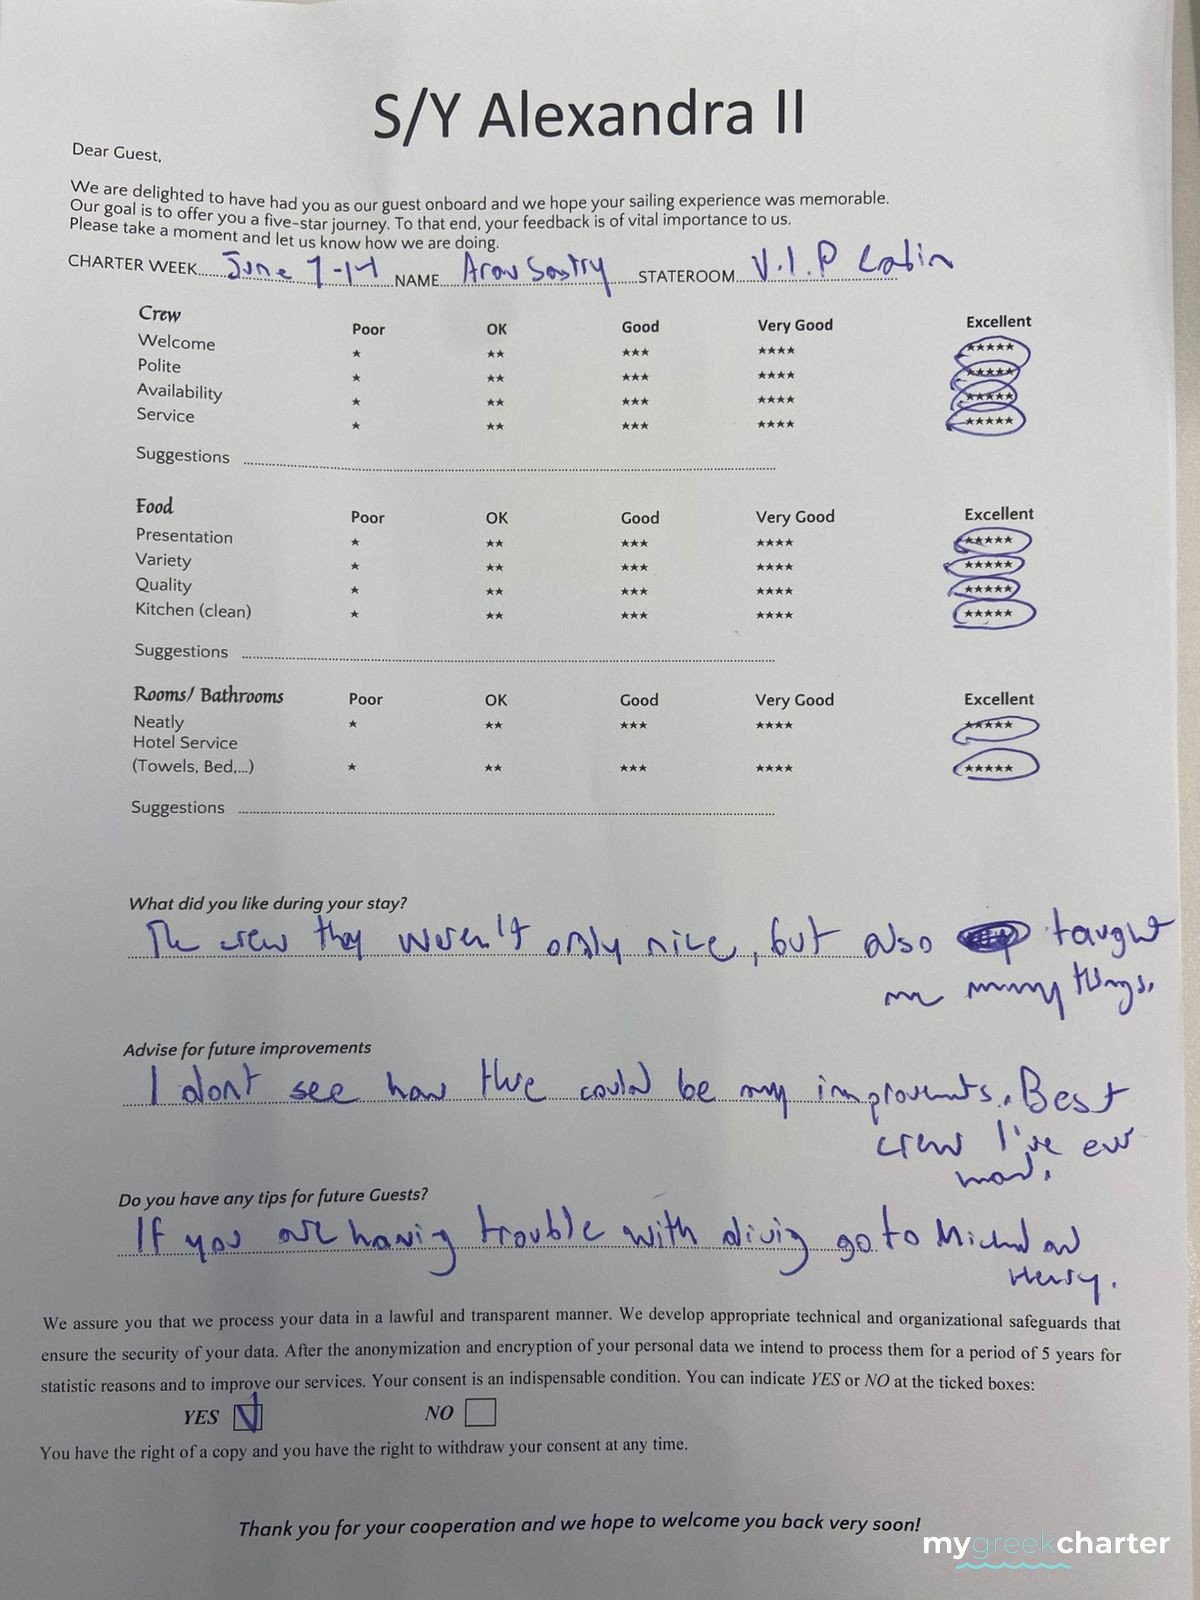 S/Y Alexandra II
Dear Guest,
We are delighted to have had you as our guest onboard and we hope your sailing experience was memorable.
Our goal is to offer you a five-star journey. To that end, your feedback is of vital importance to us.
Please take a moment and let us know how we are doing.
CHARTER WEEK...... June 7-14 ......NAME.... Arav Sastry ......STATEROOM.... V.I.P Cabin
Crew Poor OK Good Very Good Excellent
Welcome ★ ★★ ★★★ ★★★★ ★★★★★
Polite ★ ★★ ★★★ ★★★★ ★★★★★
Availability ★ ★★ ★★★ ★★★★ ★★★★★
Service ★ ★★ ★★★ ★★★★ ★★★★★
Suggestions
Food Poor OK Good Very Good Excellent
Presentation ★ ★★ ★★★ ★★★★ ★★★★★
Variety ★ ★★ ★★★ ★★★★ ★★★★★
Quality ★ ★★ ★★★ ★★★★ ★★★★★
Kitchen (clean) ★ ★★ ★★★ ★★★★ ★★★★★
Suggestions
Rooms/ Bathrooms Poor OK Good Very Good Excellent
Neatly ★ ★★ ★★★ ★★★★ ★★★★★
Hotel Service
(Towels, Bed,...) ★ ★★ ★★★ ★★★★ ★★★★★
Suggestions
What did you like during your stay?
The crew they weren't only nice, but also taught
me many things.
Advise for future improvements
I dont see how there could be any improvments. Best
crew I've ever
Do you have any tips for future Guests?
If you are having trouble with diving go to Michael and
Henry.
We assure you that we process your data in a lawful and transparent manner. We develop appropriate technical and organizational safeguards that
ensure the security of your data. After the anonymization and encryption of your personal data we intend to process them for a period of 5 years for
statistic reasons and to improve our services. Your consent is an indispensable condition. You can indicate YES or NO at the ticked boxes:
YES NO
You have the right of a copy and you have the right to withdraw your consent at any time.
Thank you for your cooperation and we hope to welcome you back very soon!
mygreekcharter